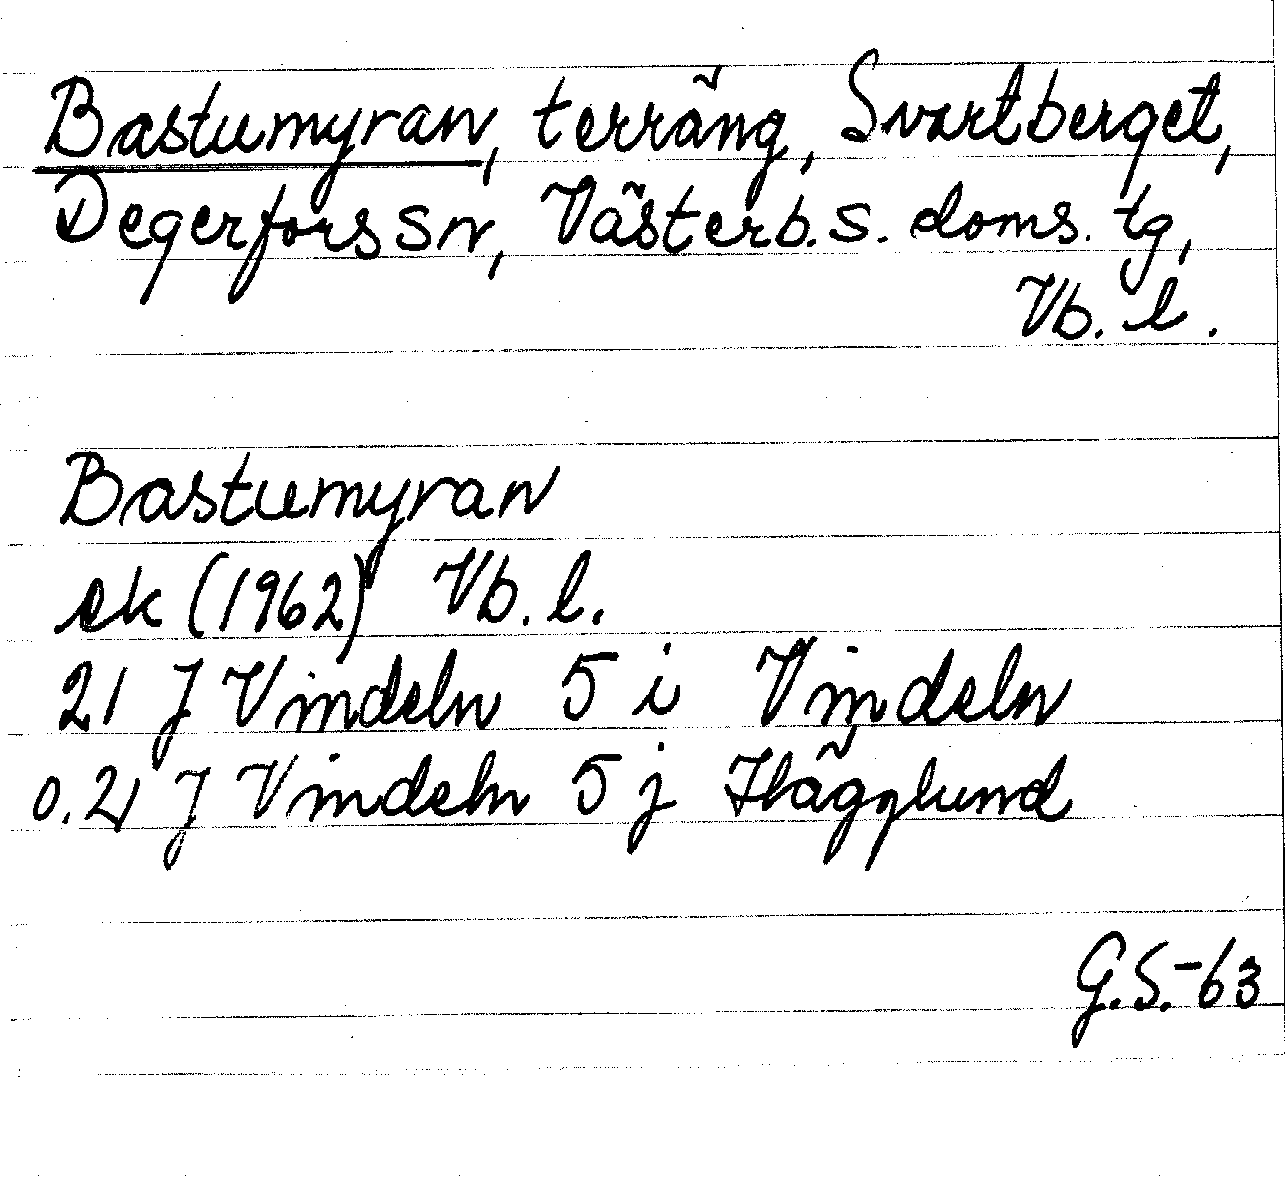 Bastumyran, terräng, Svartberget,
Degerfors sn, Västerb. s. doms. tg,
Vb. l.
Bastumyran
ek (1962) Vb. l.
21 J Vindeln 5 i Vindeln
o. 21 J Vindeln 5 j Hägglund
G.S.-63